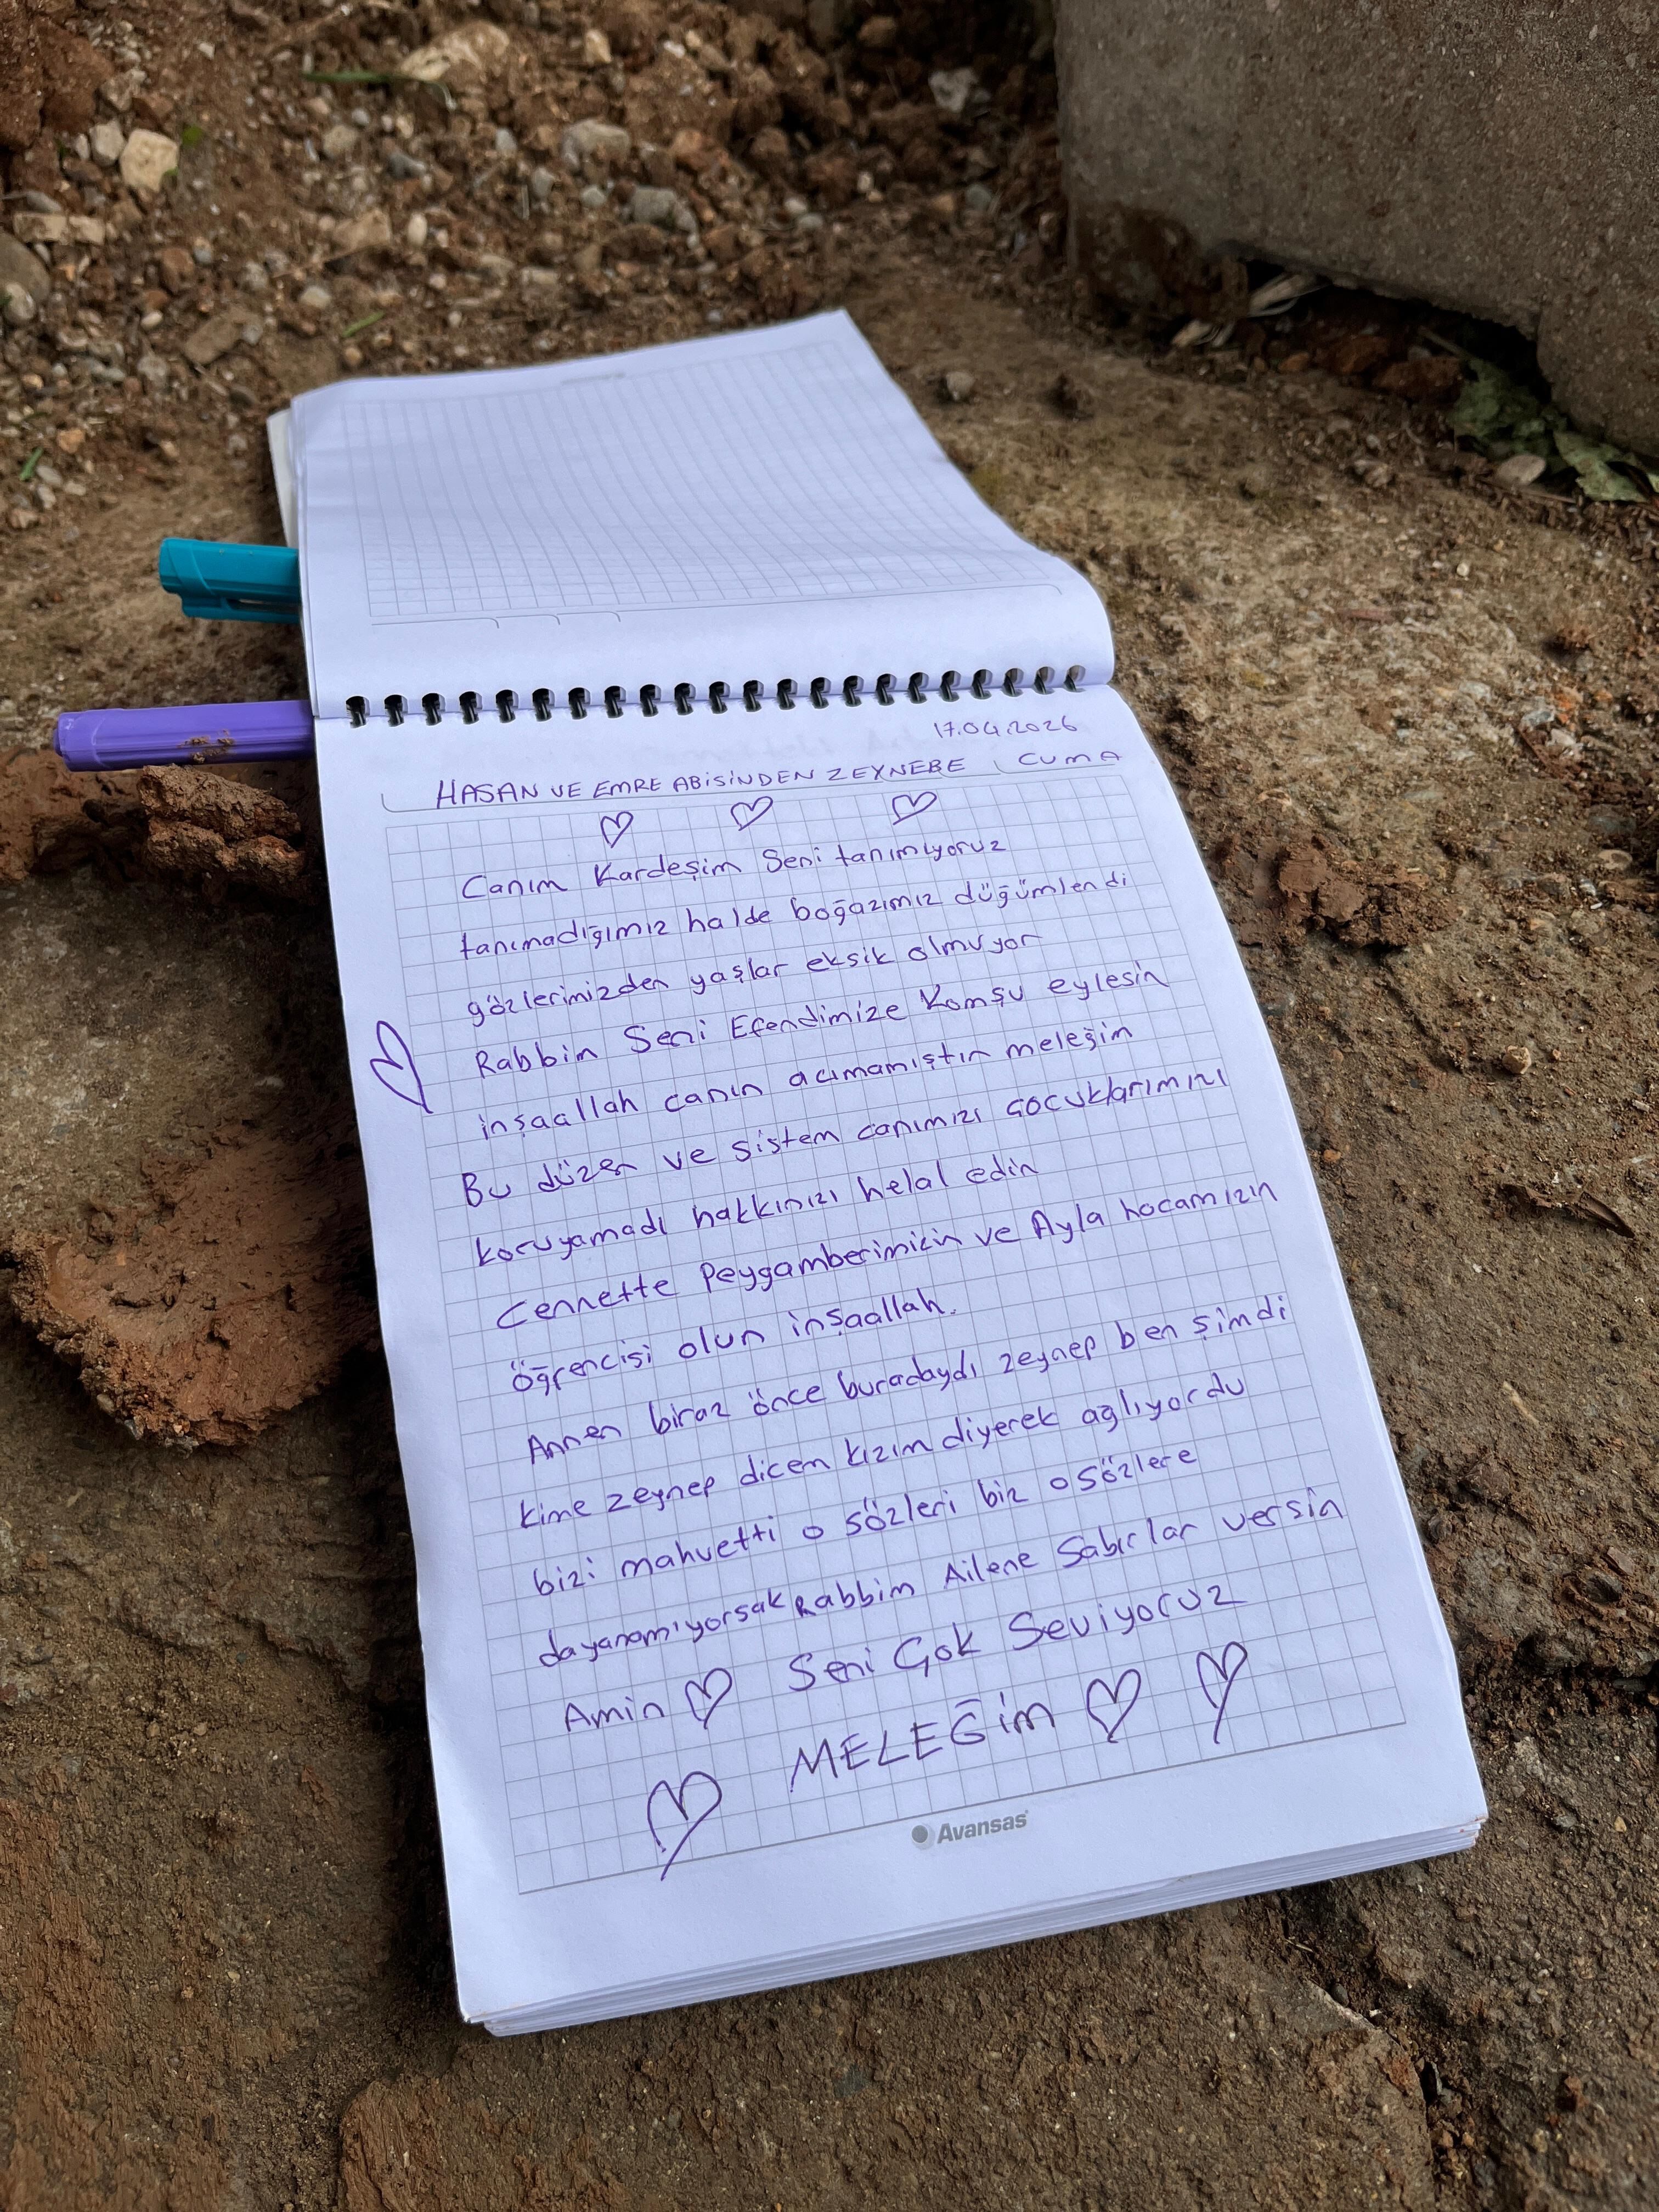 17.04.2026
HASAN VE EMRE ABİSİNDEN ZEYNEBE CUMA
Canım Kardeşim Seni tanımıyoruz
tanımadığımız halde boğazımız düğümlendi
gözlerimizden yaşlar eksik olmuyor
Rabbim Seni Efendimize Komşu eylesin
inşaallah canın acımamıştır meleğim
Bu düzen ve sistem canımızı çocuklarımızı
koruyamadı hakkınızı helal edin
Cennette Peygamberimizin ve Ayla hocamızın
öğrencisi olun inşaallah.
Annen biraz önce buradaydı zeynep ben şimdi
kime zeynep dicem kızım diyerek ağlıyordu
bizi mahvetti o sözleri biz o sözlere
dayanamıyorsak Rabbim Ailene Sabırlar versin
Amin Seni Çok Seviyoruz
MELEĞİM
Avansas